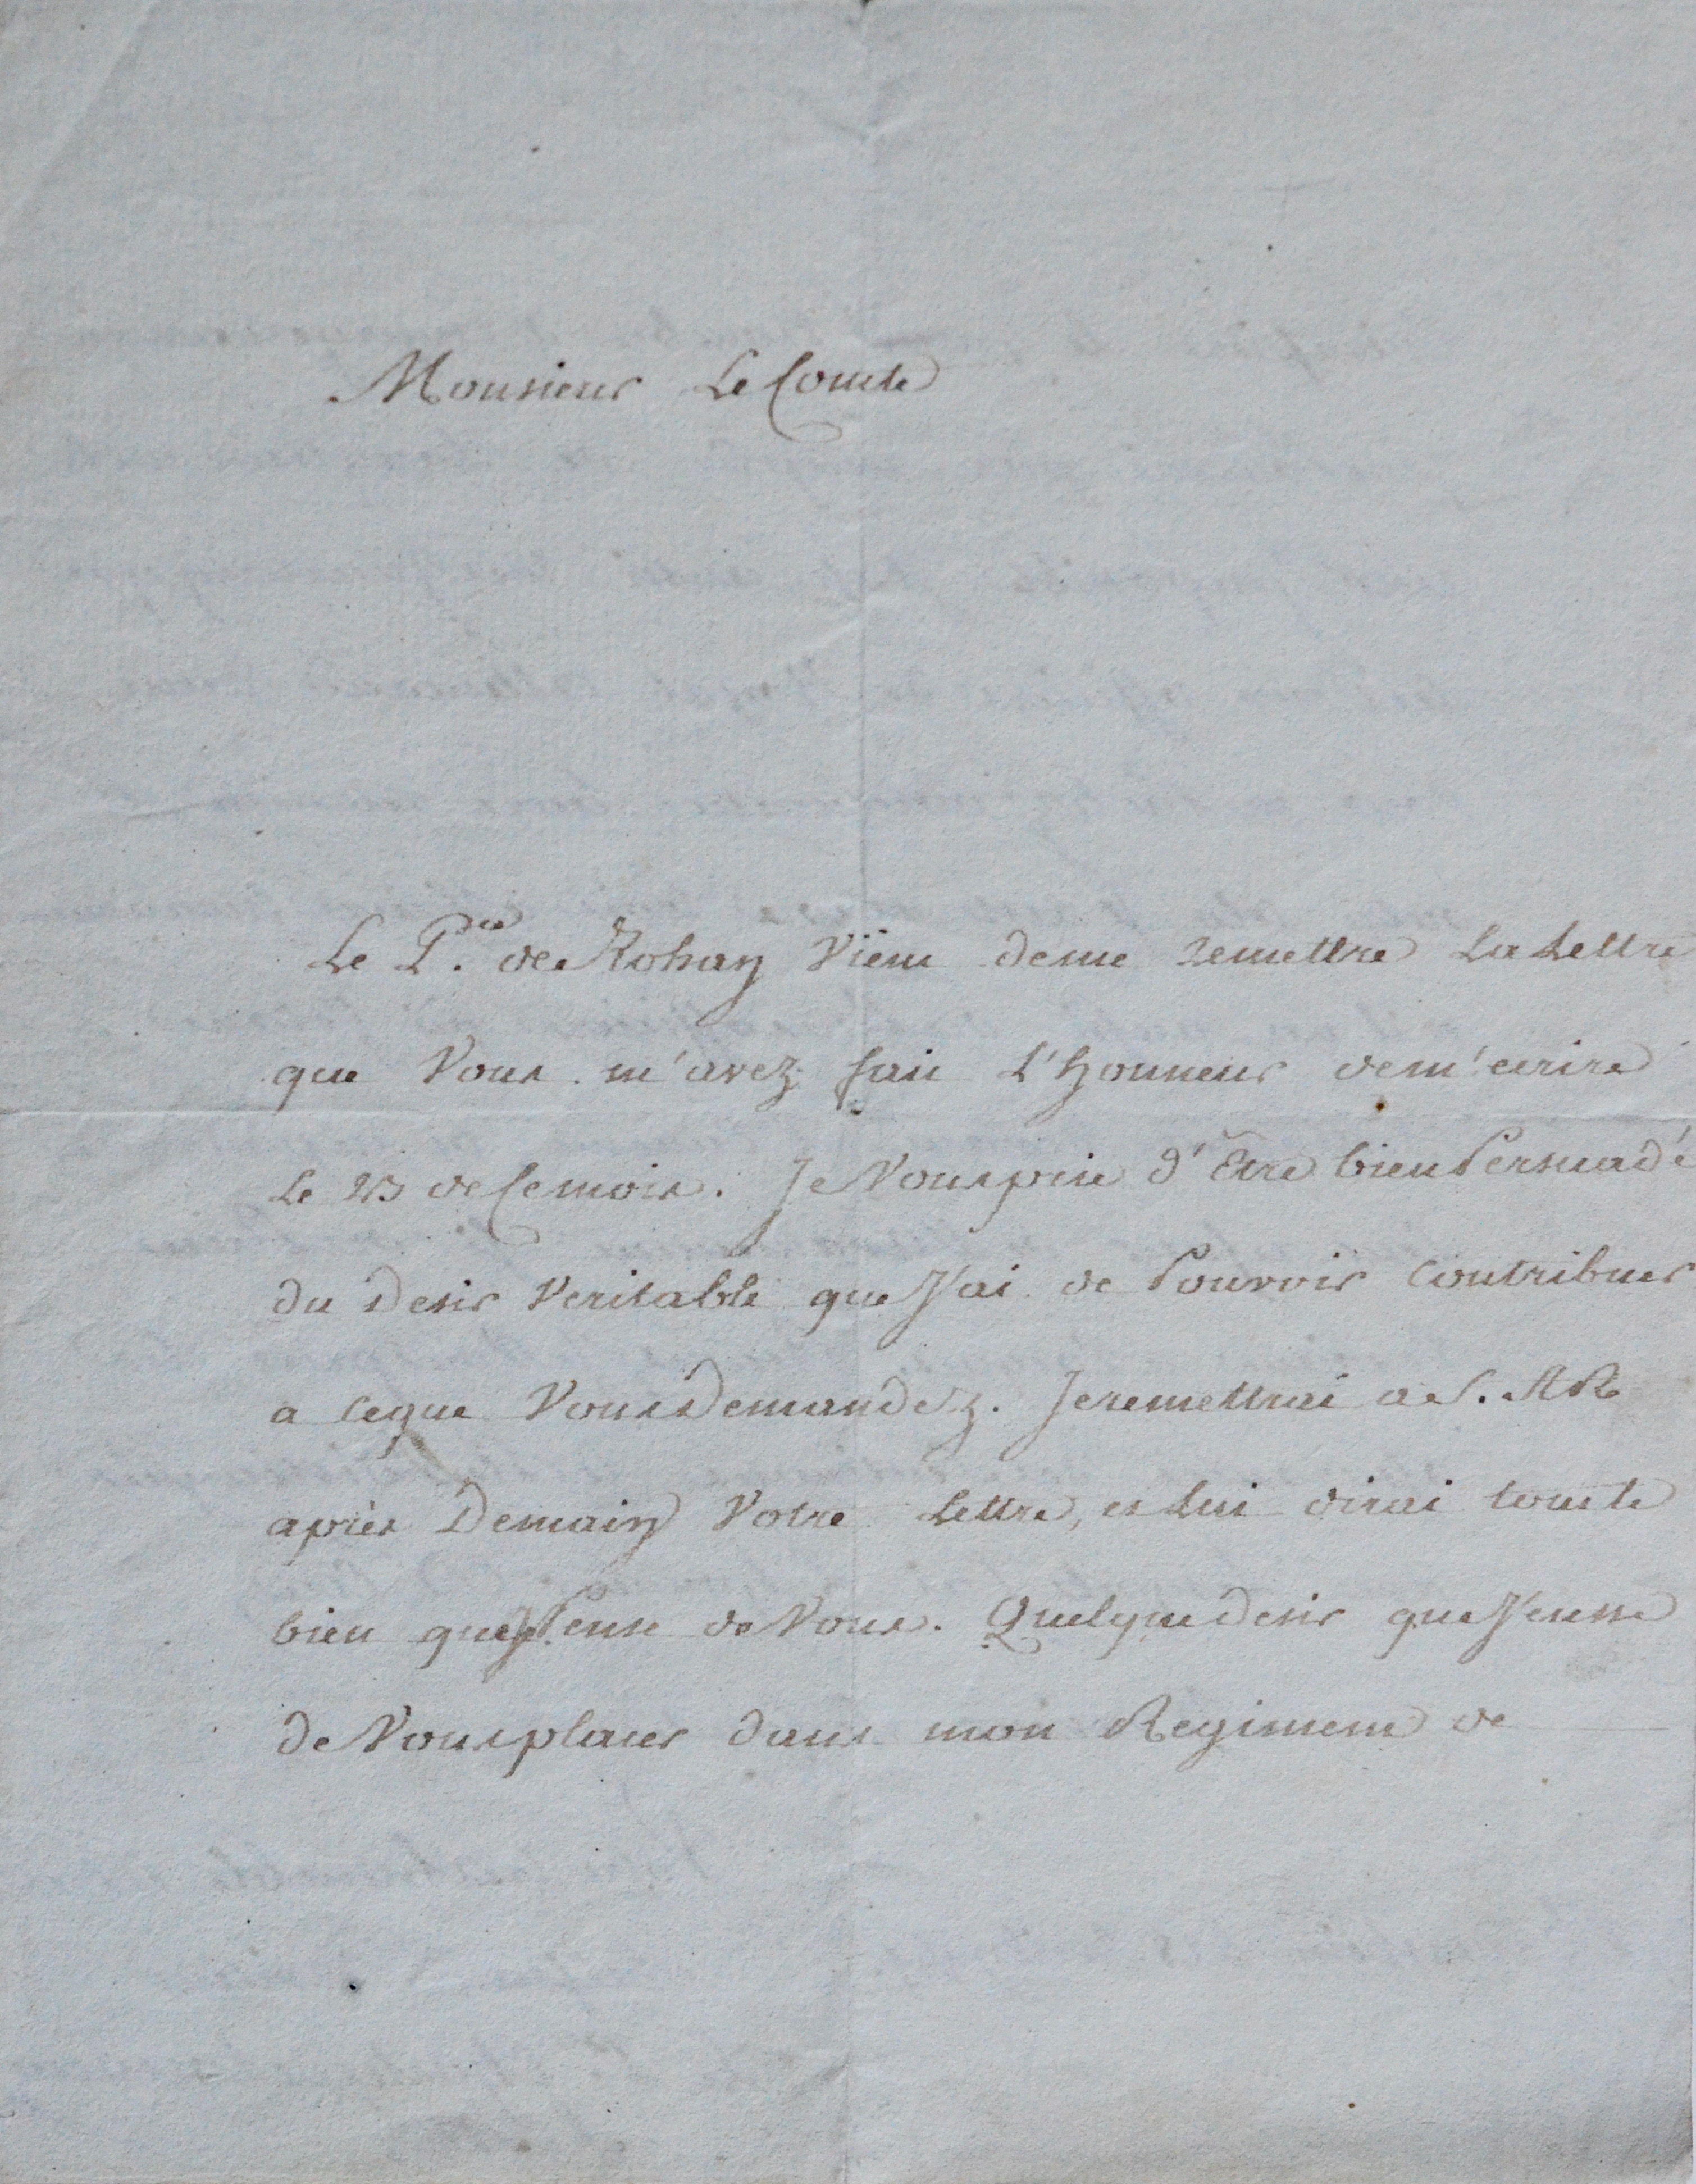 Monsieur Le Comte
Le P.ce de Rohan Vïent de me remettre La Lettre
que Vous m'avez fait L'honneur de m'ecrire
Le 23 de Ce mois. Je Vous prie d'Etre bien Persuadé
du Desir Veritable que J'ai de Pouvoir Contribuer
a Ceque Vous Demandez. Je remettrai a S. AR
après Demain Votre Lettre, et Lui dirai tout le
bien que Je Pense de Vous. Quelque desir que J'eusse
de Vous placer dans mon Regiment de